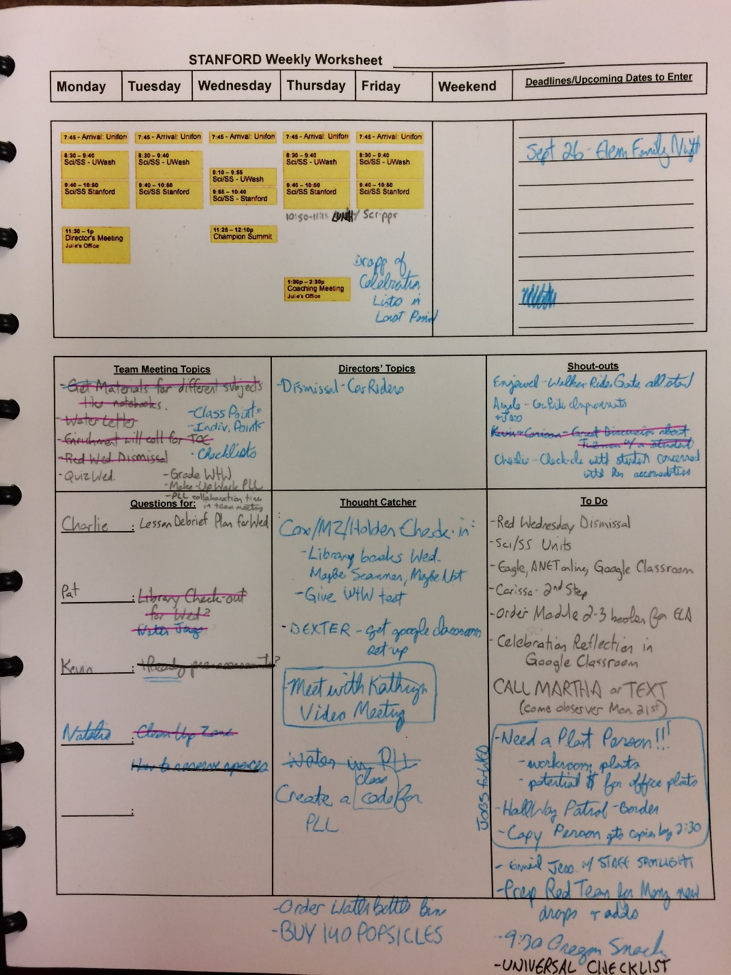 STANFORD Weekly Worksheet
Monday
Tuesday
Wednesday
Thursday
Friday
Weekend
Deadlines/Upcoming Dates to Enter
7:45 - Arrival: Uniform
7:45 - Arrival: Uniform
7:45 - Arrival: Uniform
7:45 - Arrival: Uniform
7:45 - Arrival: Uniform
8:30 – 9:40
Sci/SS - UWash
9:40 – 10:50
Sci/SS Stanford
8:30 – 9:40
Sci/SS - UWash
9:40 – 10:50
Sci/SS Stanford
9:10 – 9:55
Sci/SS - UWash
9:55 – 10:40
Sci/SS - Stanford
8:30 – 9:40
Sci/SS - UWash
9:40 – 10:50
Sci/SS Stanford
8:30 – 9:40
Sci/SS - UWash
9:40 – 10:50
Sci/SS Stanford
Scripps
11:30 – 1p
Director's Meeting
Julie's Office
11:25 – 12:10p
Champion Summit
1:30p – 2:30p
Coaching Meeting
Julie's Office
Drop off
Celebration
Lists in
Last Period
Sept 26 - Elem Family Night
Team Meeting Topics
-Get Materials for different subjects
like notebooks.
-Water Letter
-Enrichment will call for TOC
-Red Wed Dismissal
-Quiz Wed.
-Class Points
-Indiv. Points
-Checklists
-Grade WtW
-Make-Up Work PLL
-PLL collaboration time
in team meeting
Directors' Topics
-Dismissal - Car Riders
Shout-outs
-Walker Rider Gate
Kevin + Corinna - Great Discussion about
w/ a student
Charlie - Check-ins with student concerned
with her accomodations
Questions for:
Charlie : Lesson Debrief Plan for Wed
Pat : Library Check-out
for Wed?
Kevin : iReady
Natalie : Clean Up Zone
How to reserve spaces
:
Thought Catcher
Cox/MZ/Holden Check-in:
-Library books Wed.
Maybe Scanner, Maybe Not
-Give WtW test
-DEXTER - get google classroom
set up
-Meet with Kathryn
Video Meeting
-Water in PLL
Create a class code for
PLL
-Order Water bottle bins
-BUY 140 POPSICLES
To Do
-Red Wednesday Dismissal
-Sci/SS Units
-Eagle, ANET online, Google Classroom
-Carissa - 2nd Step
-Order Module 2-3 books for ELA
-Celebration Reflection in
Google Classroom
CALL MARTHA or TEXT
(come observe Mon 21st)
JOBS for WED
-Need a Plant Person!!!
-workroom plants
-potential $ for office plants
-Hallway Patrol - Border
-Copy Person gets copies by 2:30
-Email Jess w/ STAFF SPOTLIGHT
-Prep Red Team for Mon, new
drops + adds
-9:30 Oregon Snack
-UNIVERSAL CHECKLIST